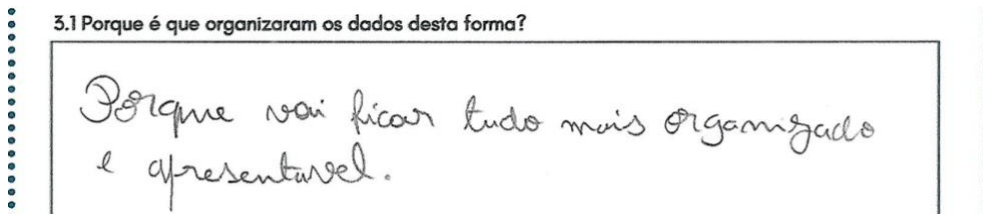 3.1 Porque é que organizaram os dados desta forma?
Porque vai ficar tudo mais organizado
e apresentavel.